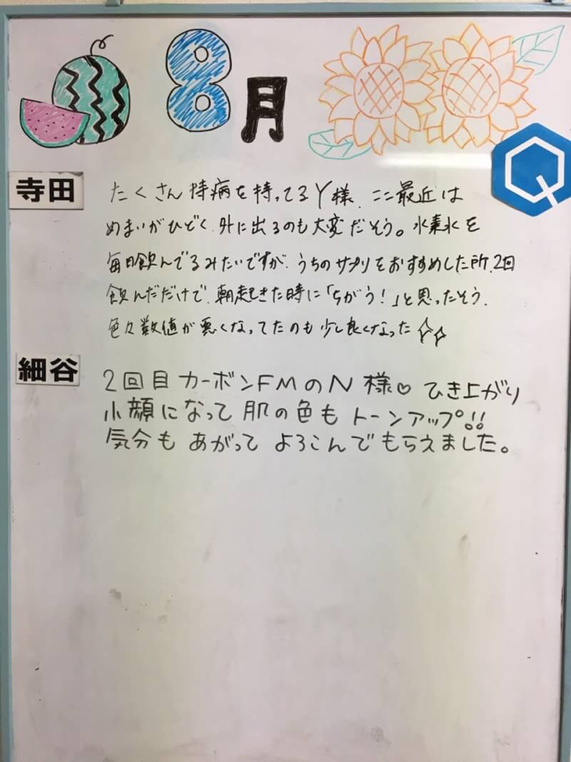 8月
寺田
たくさん持病を持ってるY様、ここ最近は
めまいがひどく、外に出るのも大変だそう。水素水を
毎日飲んでるみたいですが、うちのサプリをおすすめした所、2回
飲んだだけで、朝起きた時に「ちがう!」と思ったそう、
色々数値が悪くなってたのも少し良くなった☆☆
細谷
2回目カーボンFMのN様♡ひき上がり
小顔になって肌の色もトーンアップ!!
気分もあがってよろこんでもらえました。